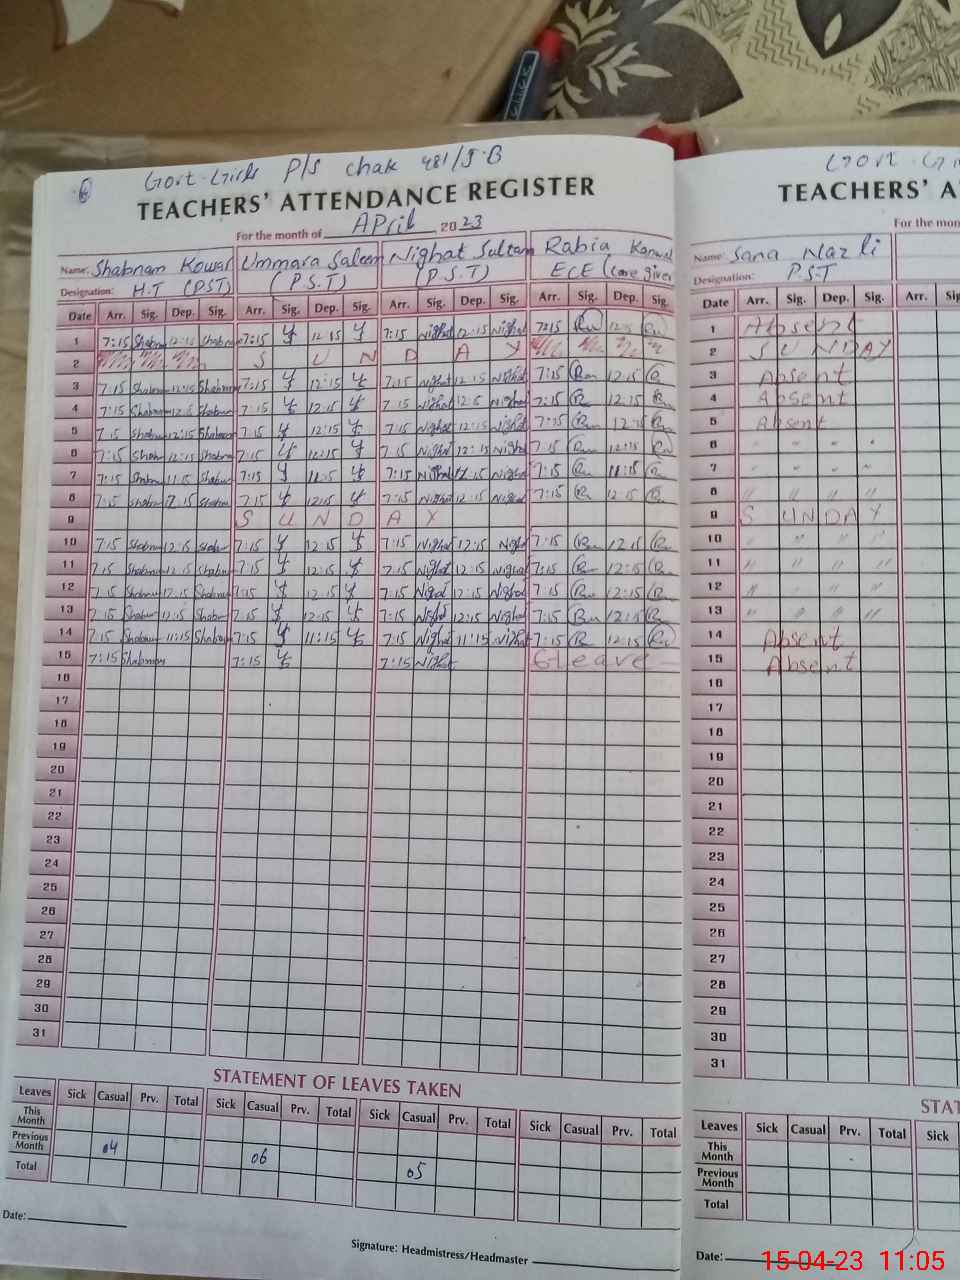 Govt. Girls P/S Chak 481/J.B
TEACHERS' ATTENDANCE REGISTER
For the month of April 2023
Name: Shabnam Kowar Ummara Saleem Nighat Sultan Rabia Kanwal
Designation: H.T (PST) (P.S.T) (P.S.T) ECE (care giver
Date Arr. Sig. Dep. Sig. Arr. Sig. Dep. Sig. Arr. Sig. Dep. Sig. Arr. Sig. Dep. Sig.
1 7:15 Shabnam 12:15 Shabnam 7:15 12:15 7:15 Nighat 12:15 Nighat 7:15 Rn 12:15 Rn
2 S U N D A Y
3 7:15 Shabnam 12:15 Shabnam 7:15 12:15 7:15 Nighat 12:15 Nighat 7:15 Rn 12:15 Rn
4 7:15 Shabnam 12:15 Shabnam 7:15 12:15 7:15 Nighat 12:15 Nighat 7:15 Rn 12:15 Rn
5 7:15 Shabnam 12:15 Shabnam 7:15 12:15 7:15 Nighat 12:15 Nighat 7:15 Rn 12:15 Rn
6 7:15 Shabnam 12:15 Shabnam 7:15 12:15 7:15 Nighat 12:15 Nighat 7:15 Rn 12:15 Rn
7 7:15 Shabnam 11:15 Shabnam 7:15 11:15 7:15 Nighat Nighat 7:15 Rn 11:15 Rn
8 7:15 Shabnam Shabnam 7:15 12:15 7:15 Nighat 12:15 Nighat 7:15 Rn 12:15 Rn
9 S U N D A Y
10 7:15 Shabnam 12:15 Shabnam 7:15 12:15 7:15 Nighat 12:15 Nighat 7:15 Rn 12:15 Rn
11 7:15 Shabnam 12:15 Shabnam 7:15 12:15 7:15 Nighat 12:15 Nighat 7:15 Rn 12:15 Rn
12 7:15 Shabnam 12:15 Shabnam 7:15 12:15 7:15 Nighat 12:15 Nighat 7:15 Rn 12:15 Rn
13 7:15 Shabnam 12:15 Shabnam 7:15 12:15 7:15 Nighat 12:15 Nighat 7:15 Rn 12:15 Rn
14 7:15 Shabnam 11:15 Shabnam 7:15 11:15 7:15 Nighat 11:15 Nighat 7:15 Rn 12:15 Rn
15 7:15 Shabnam 7:15 7:15 Nighat leave
16
17
18
19
20
21
22
23
24
25
26
27
28
29
30
31
STATEMENT OF LEAVES TAKEN
Leaves Sick Casual Prv. Total Sick Casual Prv. Total Sick Casual Prv. Total Sick Casual Prv. Total
This Month
Previous Month 04 06 05
Total
Date:
Signature: Headmistress/Headmaster
Govt. Gi
TEACHERS' A
For the mon
Name: Sana Nazli
Designation: P.S.T
Date Arr. Sig. Dep. Sig. Arr. Sig
1 Absent
2 SUNDAY
3 Absent
4 Absent
5 Absent
6 " " " "
7 " " " "
8 " " " "
9 SUNDAY
10 " " "
11 " " " "
12 " " " "
13 " " " "
14 Absent
15 Absent
16
17
18
19
20
21
22
23
24
25
26
27
28
29
30
31
STAT
Leaves Sick Casual Prv. Total Sick
This Month
Previous Month
Total
Date:
15-04-23 11:05